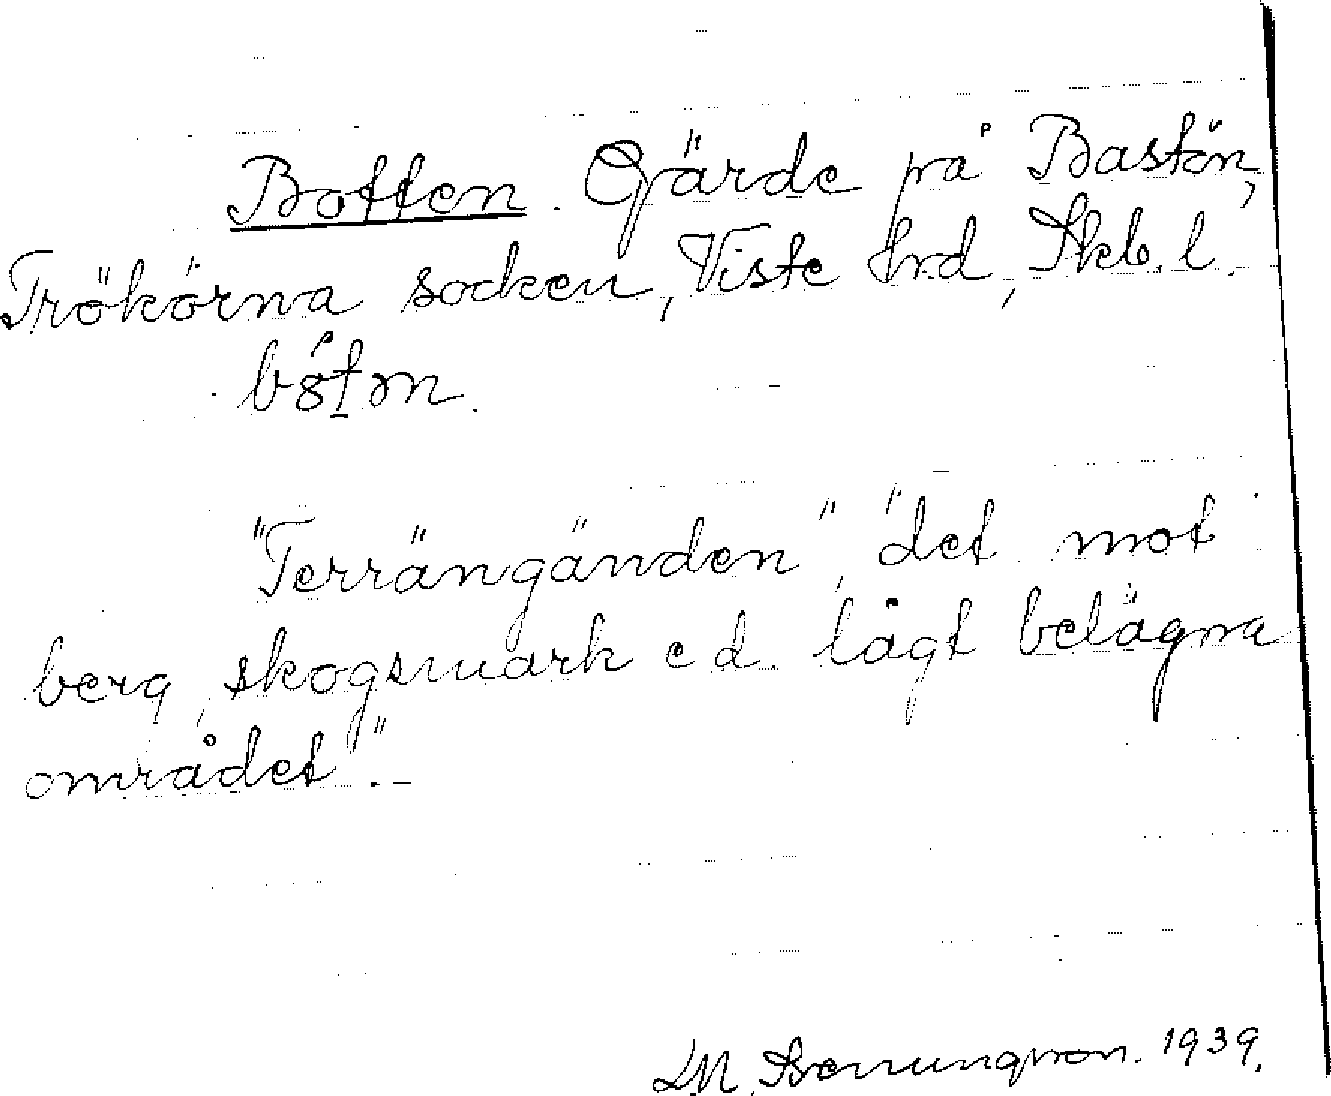 Botten. Gärde på Bastön,
Trökörna socken, Viste hrd, Skb. l.
"Terrängänden", "det mot
berg, skogsmark e d. lågt belägna
området". -
1939.